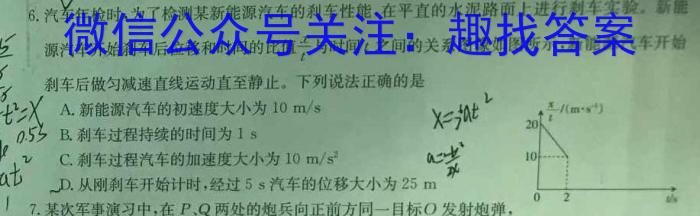 6. 汽车年检时,为了检测某新能源汽车的刹车性能,在平直的水泥路面上进行刹车实验。新能
源汽车开始刹车后位移和时间的比值 x/t 与时间 t 之间的关系图
汽车开始
微信公众号关注:趣找答案
刹车后做匀减速直线运动直至静止。下列说法正确的是
A. 新能源汽车的初速度大小为 10 m/s
B. 刹车过程持续的时间为 1 s
C. 刹车过程汽车的加速度大小为 10 m/s²
D. 从刚刹车开始计时,经过 5 s 汽车的位移大小为 25 m
x/t /(m·s⁻¹)
20
10
0 2 t/s
7. 某次军事演习中,在 P、Q 两处的炮兵向正前方同一目标 O 发射炮弹,